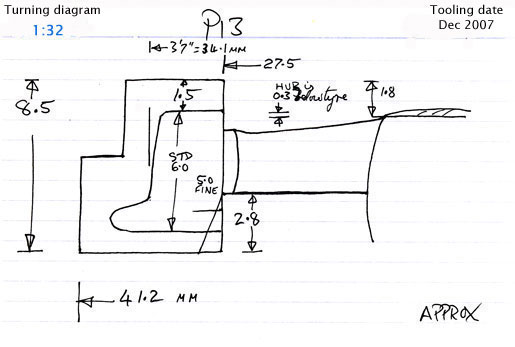 Turning diagram
1:32
Tooling date
Dec 2007
P13
3'7"=34.1 MM
27.5
8.5
1.5
HUB is
0.3 below tyre
1.8
STD
6.0
5.0
FINE
2.8
41.2 MM
APPROX